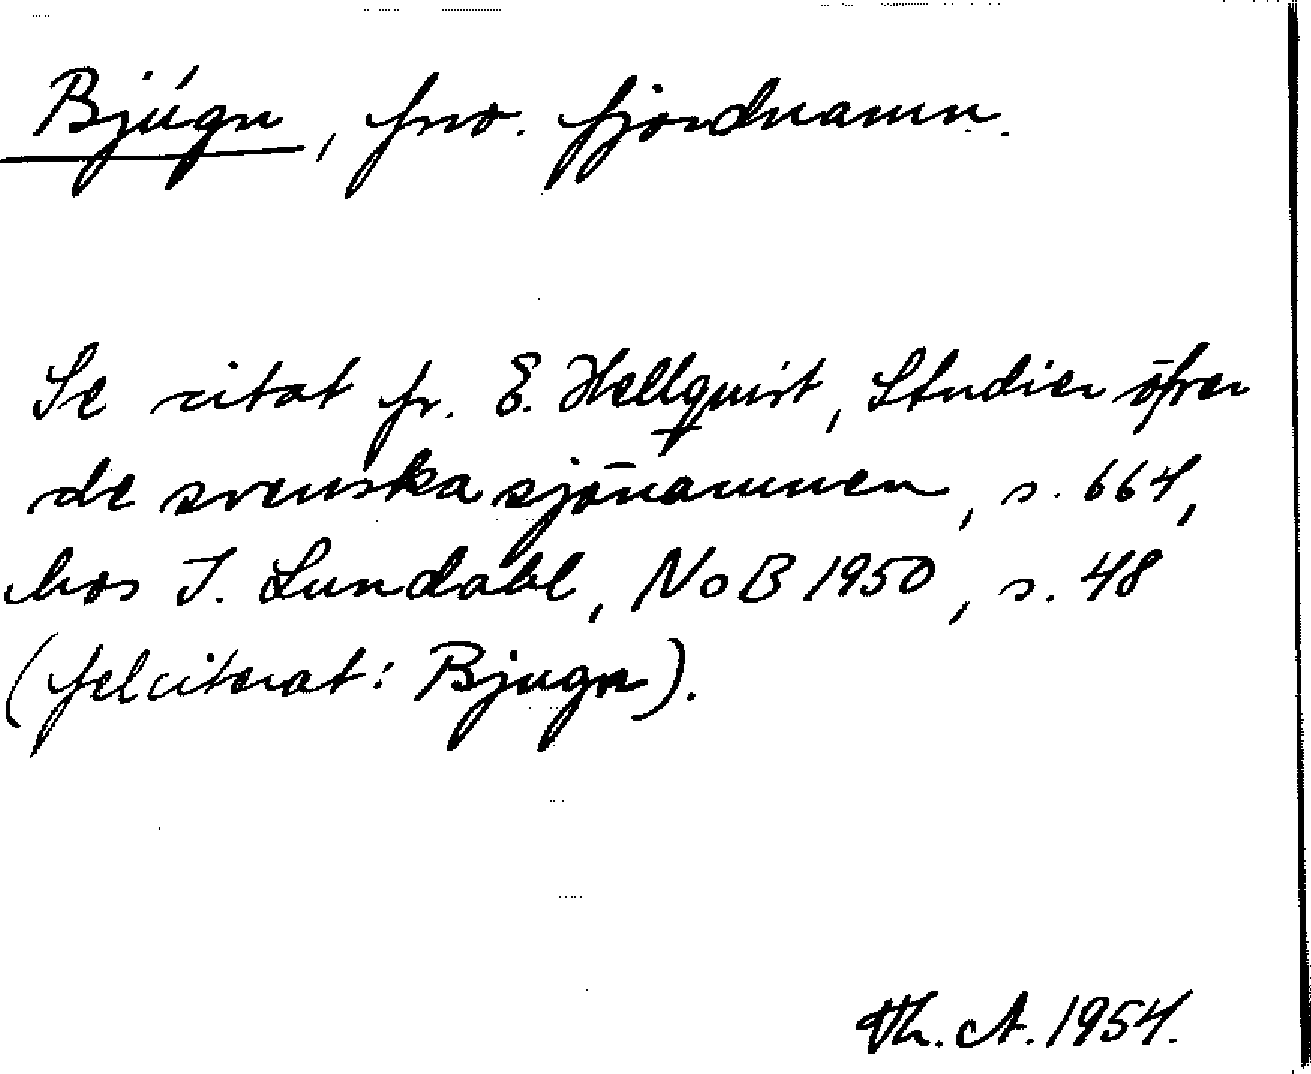 Bjúgn, fno. fjordnamn.
Se citat fr. E. Hellquist, Studier öfver
de svenska sjönamnen, s. 664,
hos I. Lundahl, NoB 1950, s. 48
(felciterat: Bjugn).
Th. A. 1954.